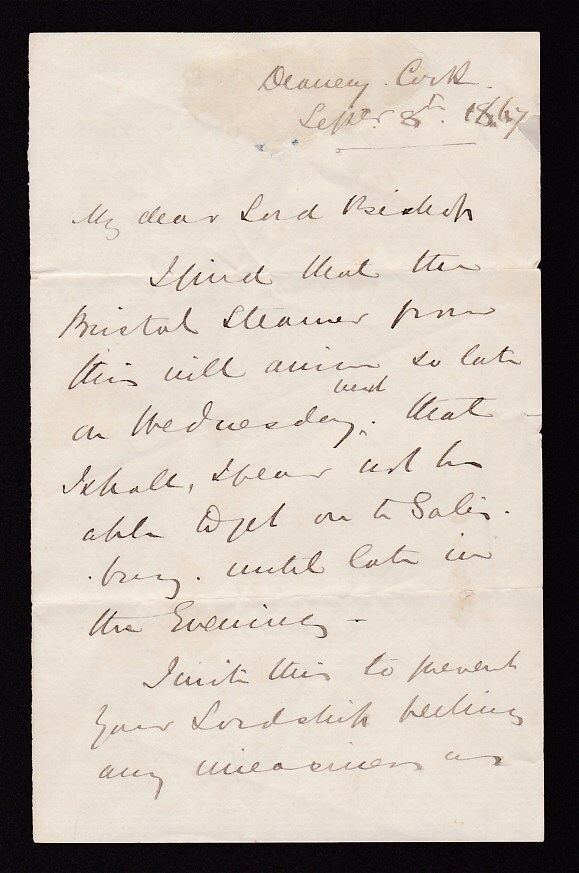 Deanery. Cork.
Septr. 8th. 1867
My dear Lord Bishop
I find that the
Bristol Steamer from
this will arrive so late
on Wednesday next that
I shall, I fear not be
able to get on to Salis-
bury. until late in
the Evening -
I write this to prevent
your Lordship feeling
any uneasiness as